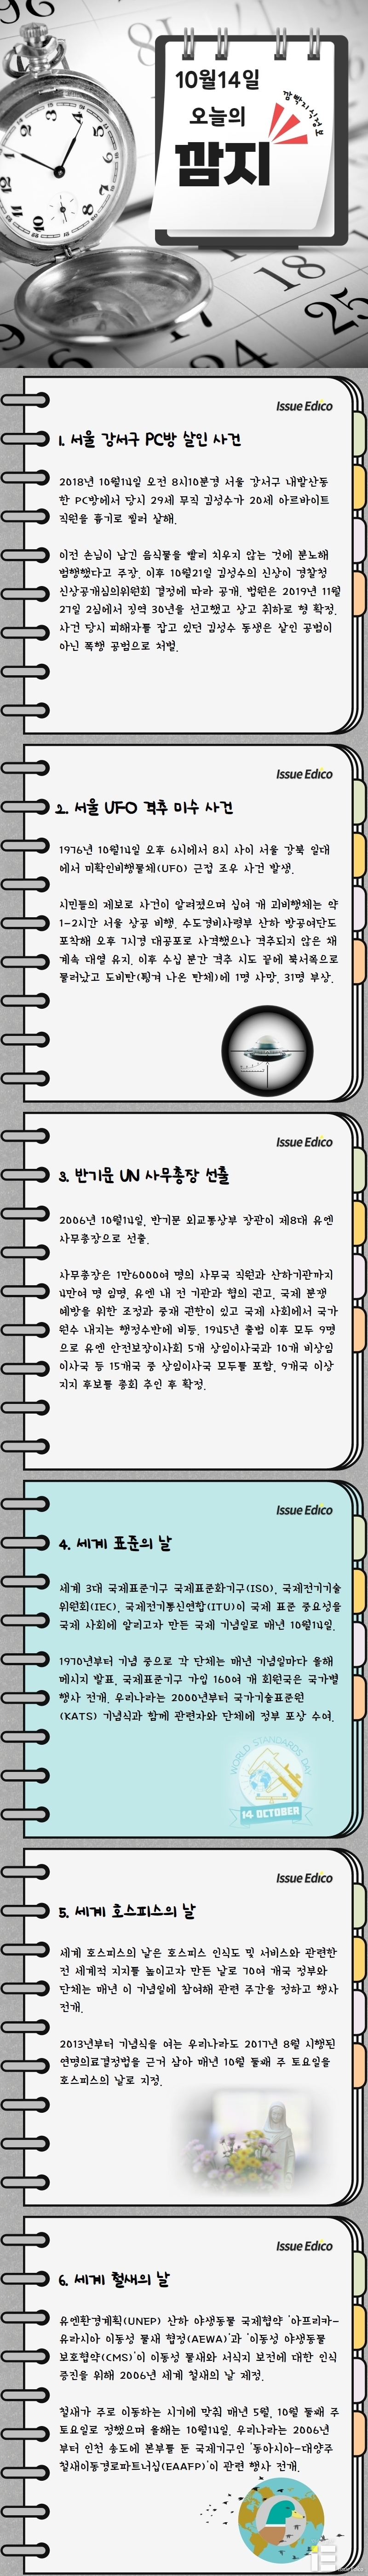 10월14일
오늘의
깜지
깜빡지식정보
Issue Edico
1. 서울 강서구 PC방 살인 사건
2018년 10월14일 오전 8시10분경 서울 강서구 내발산동
한 PC방에서 당시 29세 무직 김성수가 20세 아르바이트
직원을 흉기로 찔러 살해.
이전 손님이 남긴 음식물을 빨리 치우지 않는 것에 분노해
범행했다고 주장. 이후 10월21일 김성수의 신상이 경찰청
신상공개심의위원회 결정에 따라 공개. 법원은 2019년 11월
27일 2심에서 징역 30년을 선고했고 상고 취하로 형 확정.
사건 당시 피해자를 잡고 있던 김성수 동생은 살인 공범이
아닌 폭행 공범으로 처벌.
Issue Edico
2. 서울 UFO 격추 미수 사건
1976년 10월14일 오후 6시에서 8시 사이 서울 강북 일대
에서 미확인비행물체(UFO) 근접 조우 사건 발생.
시민들의 제보로 사건이 알려졌으며 십여 개 괴비행체는 약
1-2시간 서울 상공 비행. 수도경비사령부 산하 방공여단도
포착해 오후 7시경 대공포로 사격했으나 격추되지 않은 채
계속 대열 유지. 이후 수십 분간 격추 시도 끝에 북서쪽으로
물러났고 도비탄(튕겨 나온 탄체)에 1명 사망, 31명 부상.
Issue Edico
3. 반기문 UN 사무총장 선출
2006년 10월14일, 반기문 외교통상부 장관이 제8대 유엔
사무총장으로 선출.
사무총장은 1만6000여 명의 사무국 직원과 산하기관까지
4만여 명 임명, 유엔 내 전 기관과 협의 권고, 국제 분쟁
예방을 위한 조정과 중재 권한이 있고 국제 사회에서 국가
원수 내지는 행정수반에 비등. 1945년 출범 이후 모두 9명
으로 유엔 안전보장이사회 5개 상임이사국과 10개 비상임
이사국 등 15개국 중 상임이사국 모두를 포함, 9개국 이상
지지 후보를 총회 추인 후 확정.
Issue Edico
4. 세계 표준의 날
세계 3대 국제표준기구 국제표준화기구(ISO), 국제전기기술
위원회(IEC), 국제전기통신연합(ITU)이 국제 표준 중요성을
국제 사회에 알리고자 만든 국제 기념일로 매년 10월14일.
1970년부터 기념 중으로 각 단체는 매년 기념일마다 올해
메시지 발표. 국제표준기구 가입 160여 개 회원국은 국가별
행사 전개. 우리나라는 2000년부터 국가기술표준원
(KATS) 기념식과 함께 관련자와 단체에 정부 포상 수여.
WORLD STANDARDS DAY
14 OCTOBER
Issue Edico
5. 세계 호스피스의 날
세계 호스피스의 날은 호스피스 인식도 및 서비스와 관련한
전 세계적 지지를 높이고자 만든 날로 70여 개국 정부와
단체는 매년 이 기념일에 참여해 관련 주간을 정하고 행사
전개.
2013년부터 기념식을 여는 우리나라도 2017년 8월 시행된
연명의료결정법을 근거 삼아 매년 10월 둘째 주 토요일을
호스피스의 날로 지정.
Issue Edico
6. 세계 철새의 날
유엔환경계획(UNEP) 산하 야생동물 국제협약 '아프리카-
유라시아 이동성 물새 협정(AEWA)'과 '이동성 야생동물
보호협약(CMS)'이 이동성 물새와 서식지 보전에 대한 인식
증진을 위해 2006년 세계 철새의 날 제정.
철새가 주로 이동하는 시기에 맞춰 매년 5월, 10월 둘째 주
토요일로 정했으며 올해는 10월14일. 우리나라는 2006년
부터 인천 송도에 본부를 둔 국제기구인 '동아시아-대양주
철새이동경로파트너십(EAAFP)'이 관련 행사 전개.